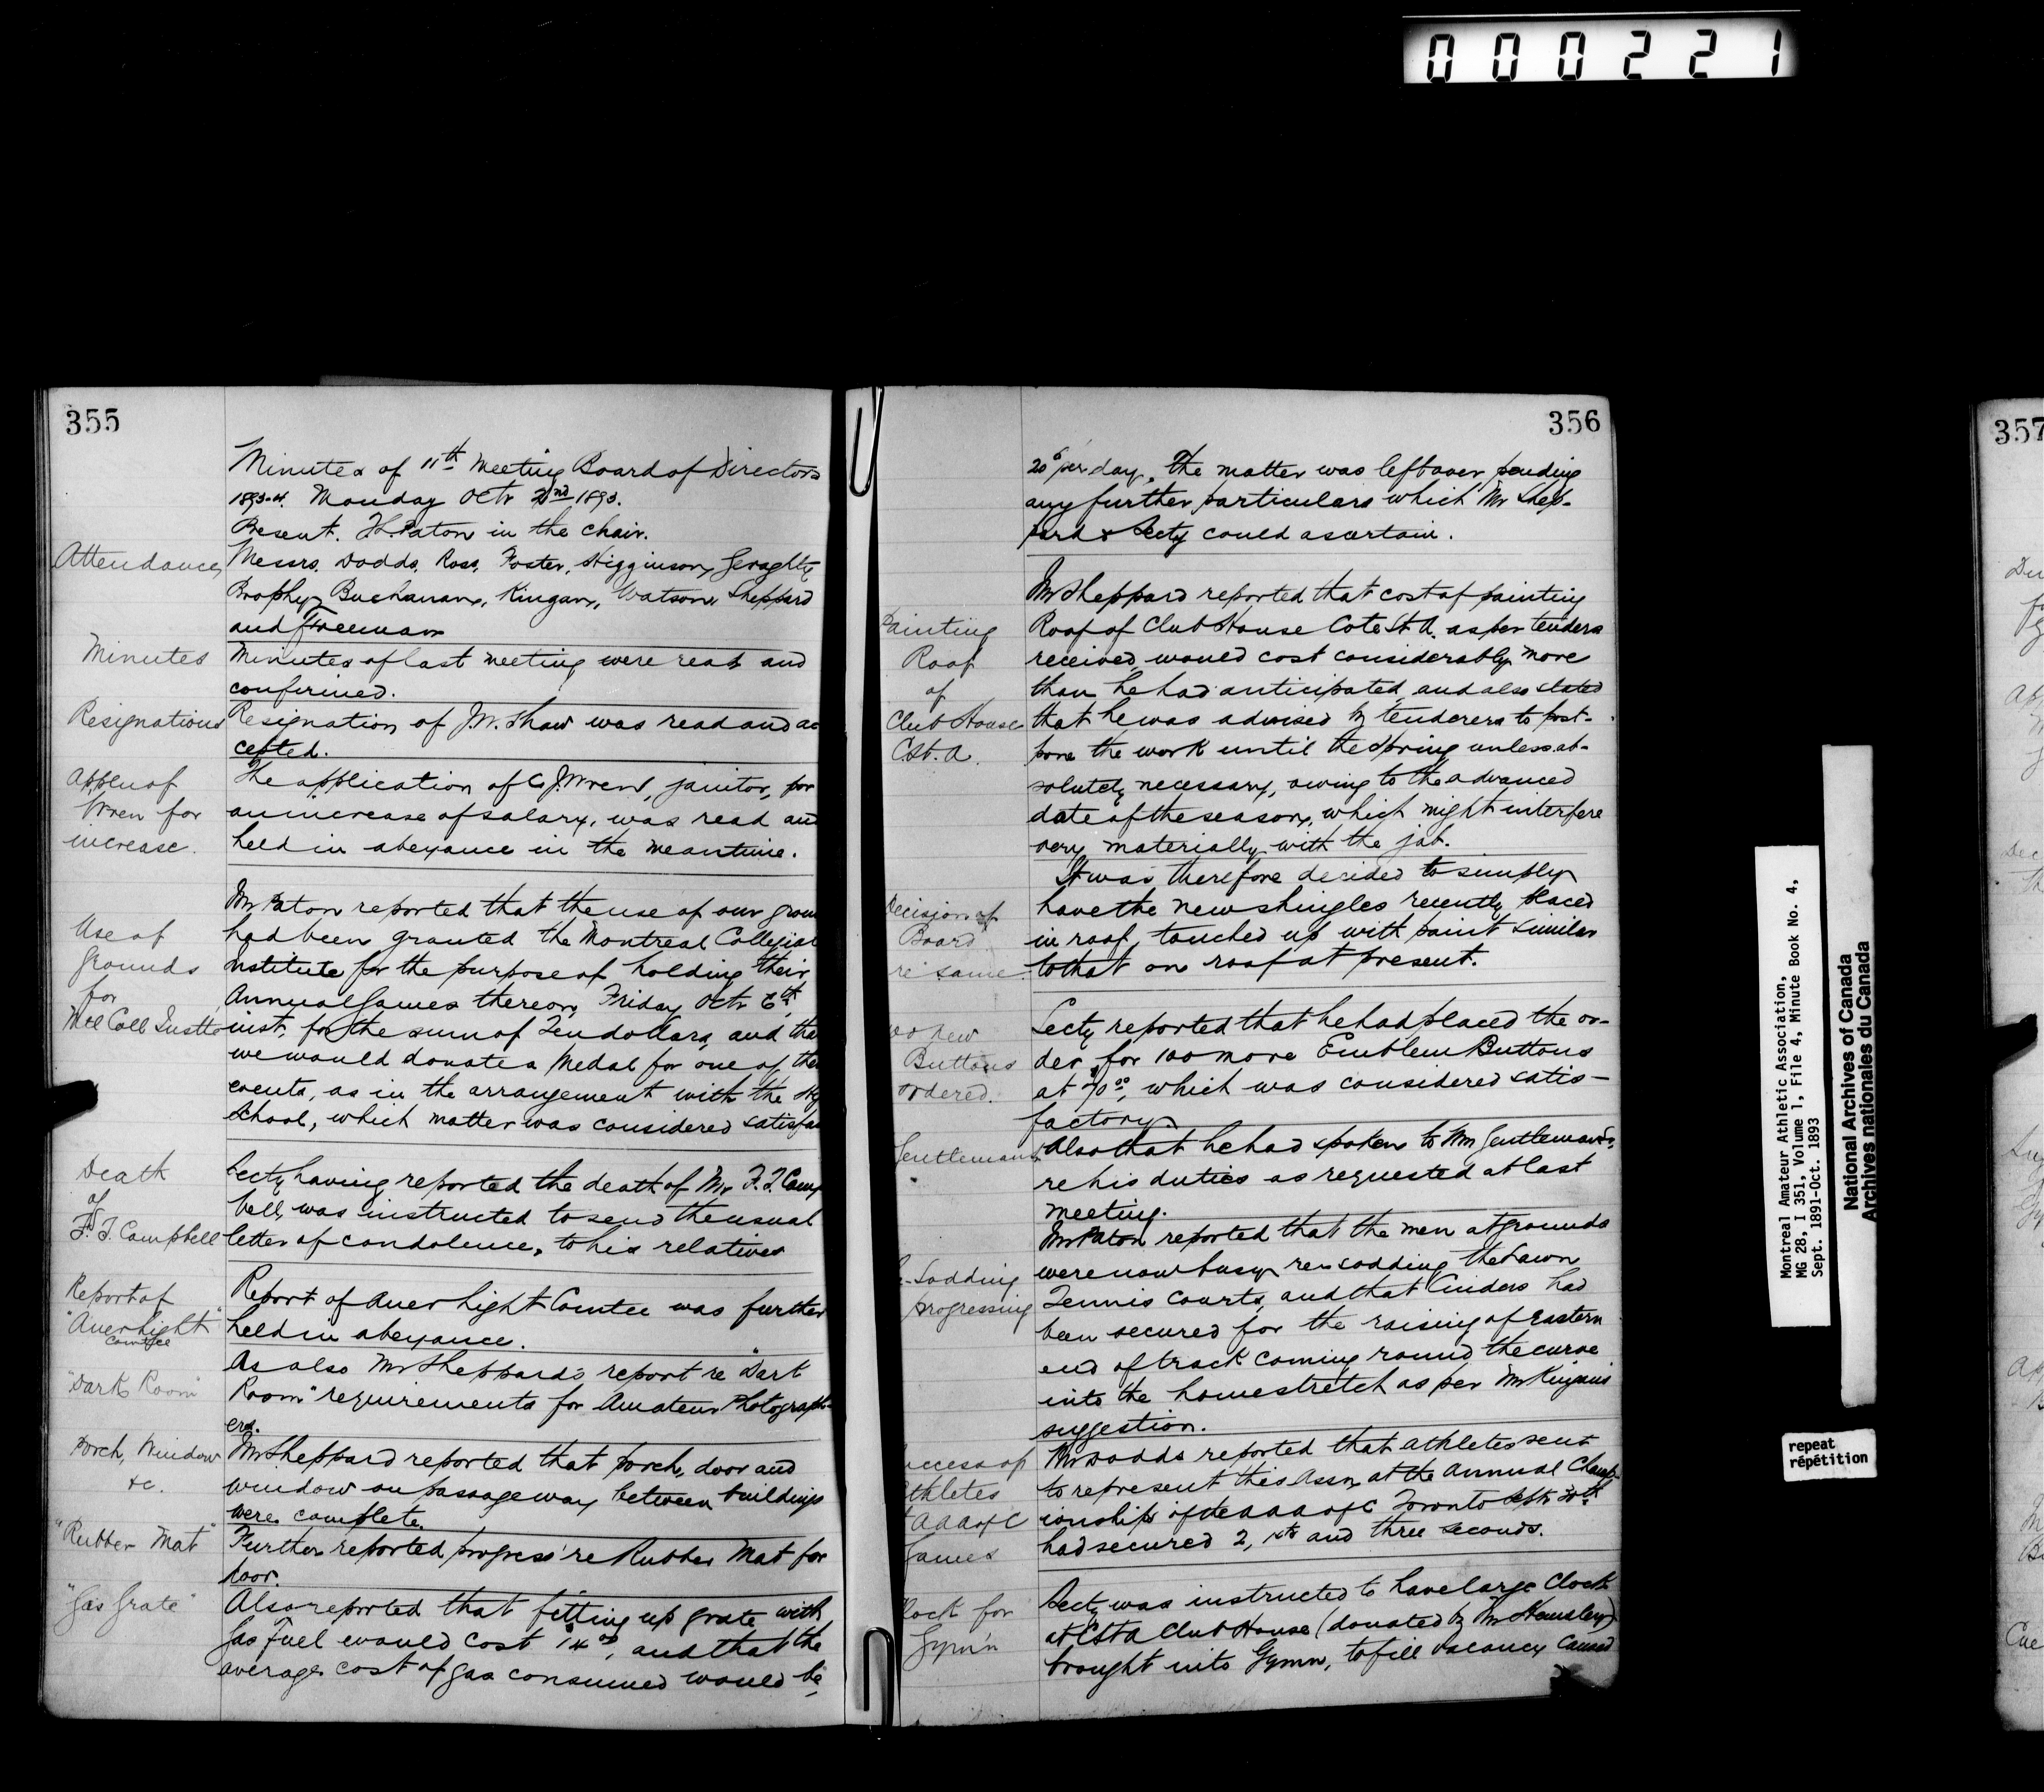 000221
355
Minutes of 11th Meeting Board of Directors
1893-4. Monday Octr 2nd 1893.
Present. T.L. Paton in the chair.
Attendance, Messrs. Dodds, Ross, Foster, Higginson, Geraghty
Brophy, Buchanan, Kingan, Watson, Sheppard
and Freeman
Minutes Minutes of last meeting were read and
confirmed.
Resignations Resignation of J.W. Shaw was read and ac
cepted.
Appln of The application of C. J. Wren, janitor, for
Wren for an increase of salary, was read and
increase. held in abeyance in the meantime.
Mr Paton reported that the use of our groun
Use of had been granted the Montreal Collegiat
grounds Institute for the purpose of holding their
for Annual Games thereon, Friday Octr 6th
Mtl Coll Instte inst, for the sum of Ten dollars, and tha
we would donate a Medal for one of the
events, as in the arrangement with the Hig
School, which matter was considered satisfac
Death Secty having reported the death of Mr F.T. Camp
of bell, was instructed to send the usual
F.T. Campbell letter of condolence, to his relatives
Report of Report of Auer Light Comtee was further
"Auer Light" held in abeyance.
Comtee
As also Mr Sheppard's report re "Dark
"Dark Room" Room" requirements for Amateur Photograph-
ers.
Porch, Window Mr Sheppard reported that porch, door and
&c. window on passageway between buildings
were complete.
"Rubber Mat" Further reported progress re Rubber Mat for
door.
"Gas Grate" Also reported that fitting up grate with
Gas Fuel would cost $14.00, and that the
average cost of gas consumed would be
356
20c per day. The matter was left over pending
any further particulars which Mr Shep-
pard & Secty could ascertain.
Mr Sheppard reported that cost of painting
Painting Roof of Club House Cote St A. as per tenders
Roof received, would cost considerably more
of than he had anticipated, and also stated
Club House that he was advised by tenderers to post-
C. St. A. pone the work until the Spring unless ab-
solutely necessary, owing to the advanced
date of the season, which might interfere
very materially with the job.
It was therefore decided to simply
Decision of have the new shingles recently placed
Board in roof, touched up with paint similar
re same. to that on roof at present.
Secty reported that he had placed the or-
00 new der for 100 more Emblem Buttons
Buttons at $70.00, which was considered satis-
ordered. factory.
Gentleman Also that he had spoken to Wm Gentleman
re his duties as requested at last
meeting.
Mr Paton reported that the men at grounds
Sodding were now busy re-sodding the Lawn
progressing Tennis Courts, and that Cinders had
been secured for the raising of Eastern
end of track coming round the curve
into the homestretch as per Mr Kingan's
suggestion.
uccess of Mr Dodds reported that athletes sent
thletes to represent this Assn at the Annual Champ-
AAA of C ionships of the AAA of C Toronto Septr 30th
Games had secured 2, 1sts and three seconds.
Secty was instructed to have large Clock
lock for at CStA Club House (donated by Mr Hemsley)
Gym'n brought into Gymn, to fill vacancy caused
357
Montreal Amateur Athletic Association,
MG 28, I 351, Volume 1, File 4, Minute Book No. 4,
Sept. 1891-Oct. 1893
National Archives of Canada
Archives nationales du Canada
repeat
répétition